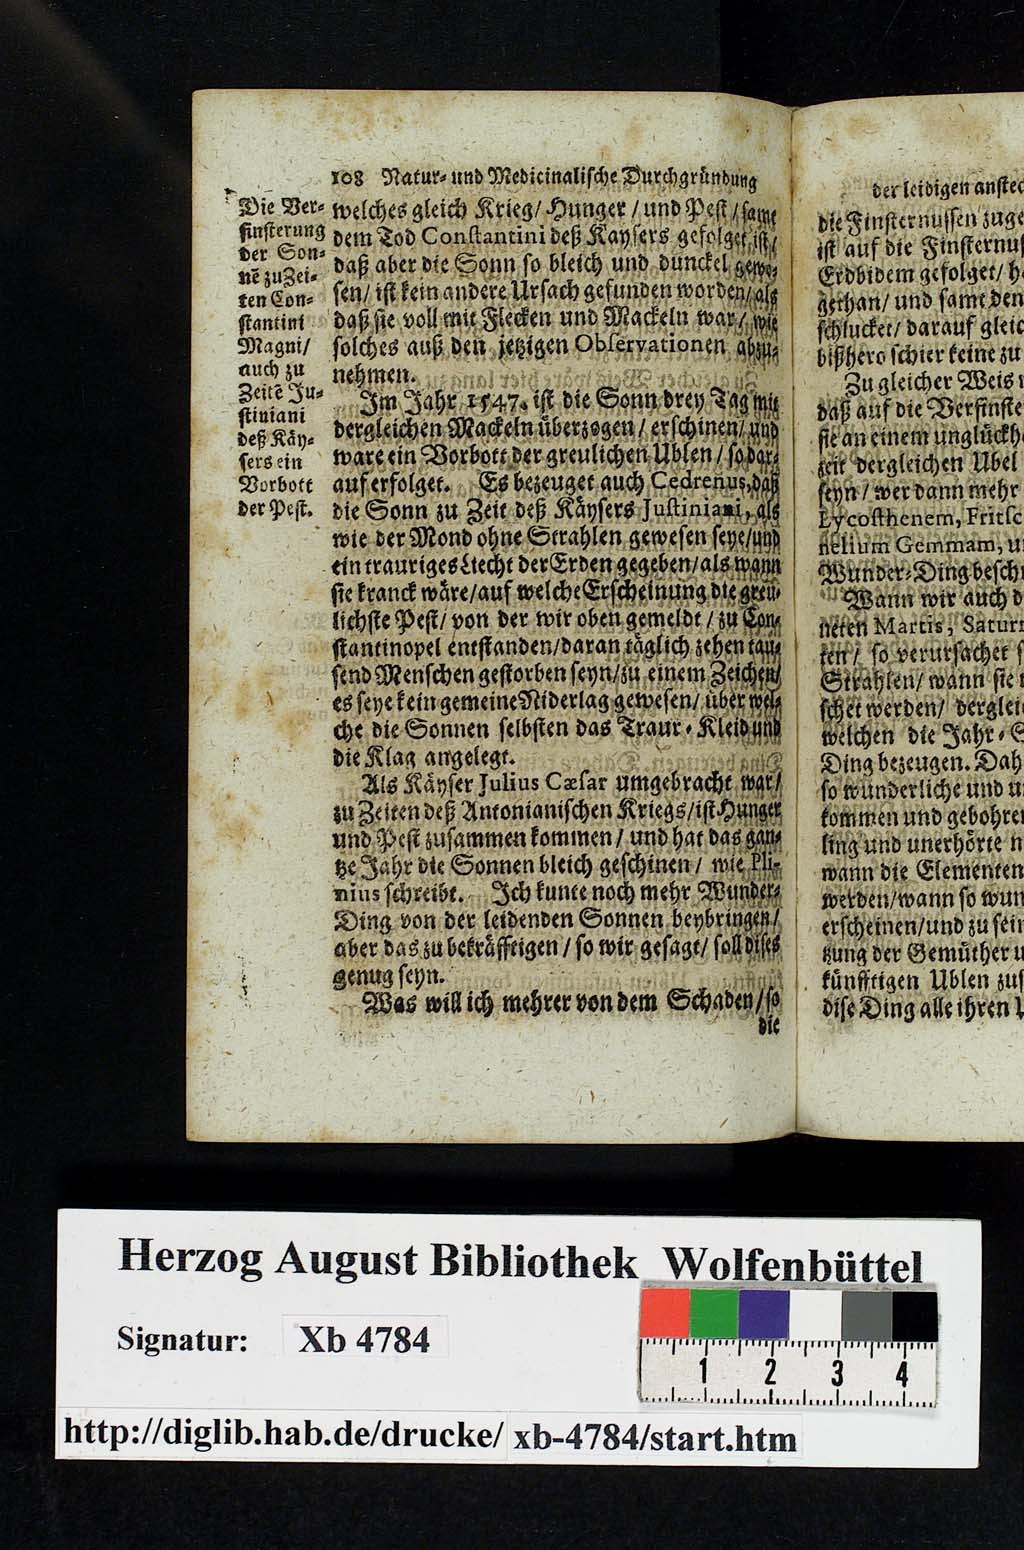 108 Natur- und Medicinalische Durchgründung
Die Ver-
finsterung
der Son-
nē zu Zei-
ten Con-
stantini
Magni/
auch zu
Zeitē Ju-
stiniani
deß Käy-
sers ein
Vorbott
der Pest.
welches gleich Krieg/ Hunger/ und Pest/ samt
dem Tod Constantini deß Kaysers gefolget ist/
daß aber die Sonn so bleich und dunckel gewe-
sen/ ist kein andere Ursach gefunden worden/ als
daß sie voll mit Flecken und Mackeln war/ wie
solches auß den jetzigen Observationen abzu-
nehmen.
Im Jahr 1547. ist die Sonn drey Tag mit
dergleichen Mackeln überzogen/ erschinen/ und
ware ein Vorbott der greulichen Ublen/ so dar-
auf erfolget. Es bezeuget auch Cedrenus, daß
die Sonn zu Zeit deß Käysers Justiniani, als
wie der Mond ohne Strahlen gewesen seye/ und
ein trauriges Liecht der Erden gegeben/ als wann
sie kranck wäre/ auf welche Erscheinung die greu-
lichste Pest/ von der wir oben gemeldt/ zu Con-
stantinopel entstanden/ daran täglich zehen tau-
send Menschen gestorben seyn/ zu einem Zeichen/
es seye kein gemeine Niderlag gewesen/ über wel-
che die Sonnen selbsten das Traur-Kleid und
die Klag angelegt.
Als Käyser Julius Cæsar umgebracht war/
zu Zeiten deß Antonianischen Kriegs/ ist Hunger
und Pest zusammen kommen/ und hat das gan-
tze Jahr die Sonnen bleich geschinen/ wie Pli-
nius schreibt. Ich kunte noch mehr Wunder-
Ding von der leidenden Sonnen beybringen/
aber das zu bekräfftigen/ so wir gesagt/ soll dises
genug seyn.
Was will ich mehrer von dem Schaden/ so
die
der leidigen anstec
die Finsternussen zuge
ist auf die Finsternus
Erdbidem gefolget/ h
gethan/ und samt den
schlucket/ darauf gleic
bißhero schier keine zu
Zu gleicher Weis
daß auf die Verfinste
sie an einem unglückh
zeit dergleichen Ubel
seyn/ wer dann mehr
Lycosthenem, Fritsc
nelium Gemmam, u
Wunder-Ding besch
Wann wir auch d
neten Martis, Saturn
ten/ so verursachet s
Strahlen/ wann sie
schet werden/ derglei
welchen die Jahr-S
Ding bezeugen. Dah
so wunderliche und u
kommen und gebohre
ling und unerhörte n
wann die Elementen
werden/ wann so wun
erscheinen/ und zu sein
tzung der Gemüther u
künfftigen Ublen zus
dise Ding alle ihren
Herzog August Bibliothek Wolfenbüttel
Signatur: Xb 4784
1 2 3 4
http://diglib.hab.de/drucke/ xb-4784/start.htm